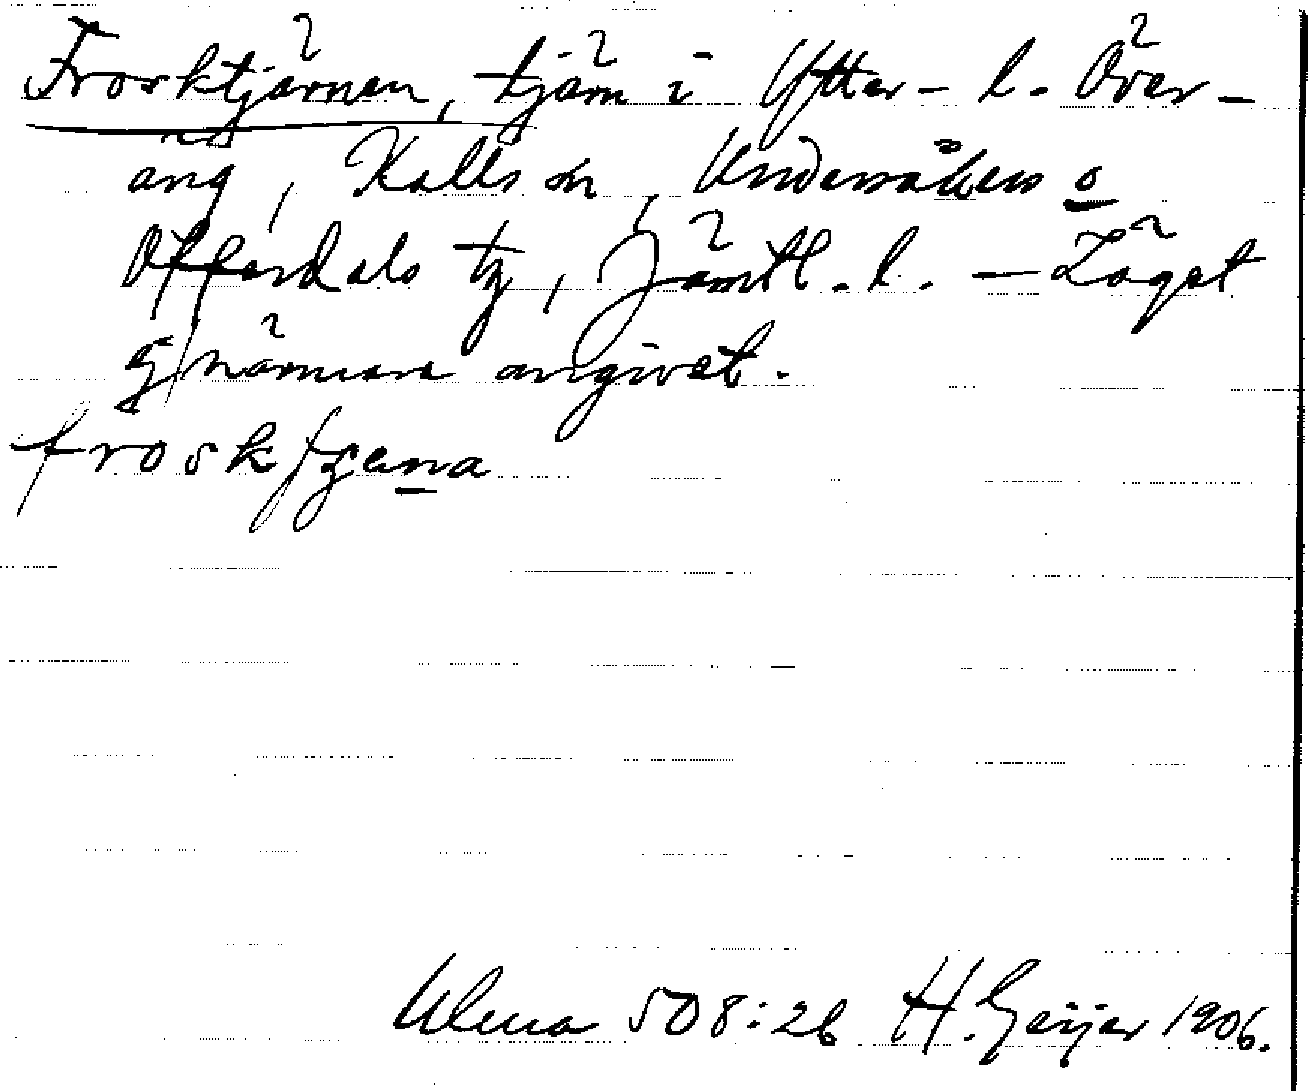 Frosktjärnen, tjärn i Ytter- l. Över-
äng, Kalls sn, Undersåkers o
Offerdals tg, Jämtl. l. — Läget
ej närmare angivet.
froskt
Ulma 508:26 H. Geijer 1906.